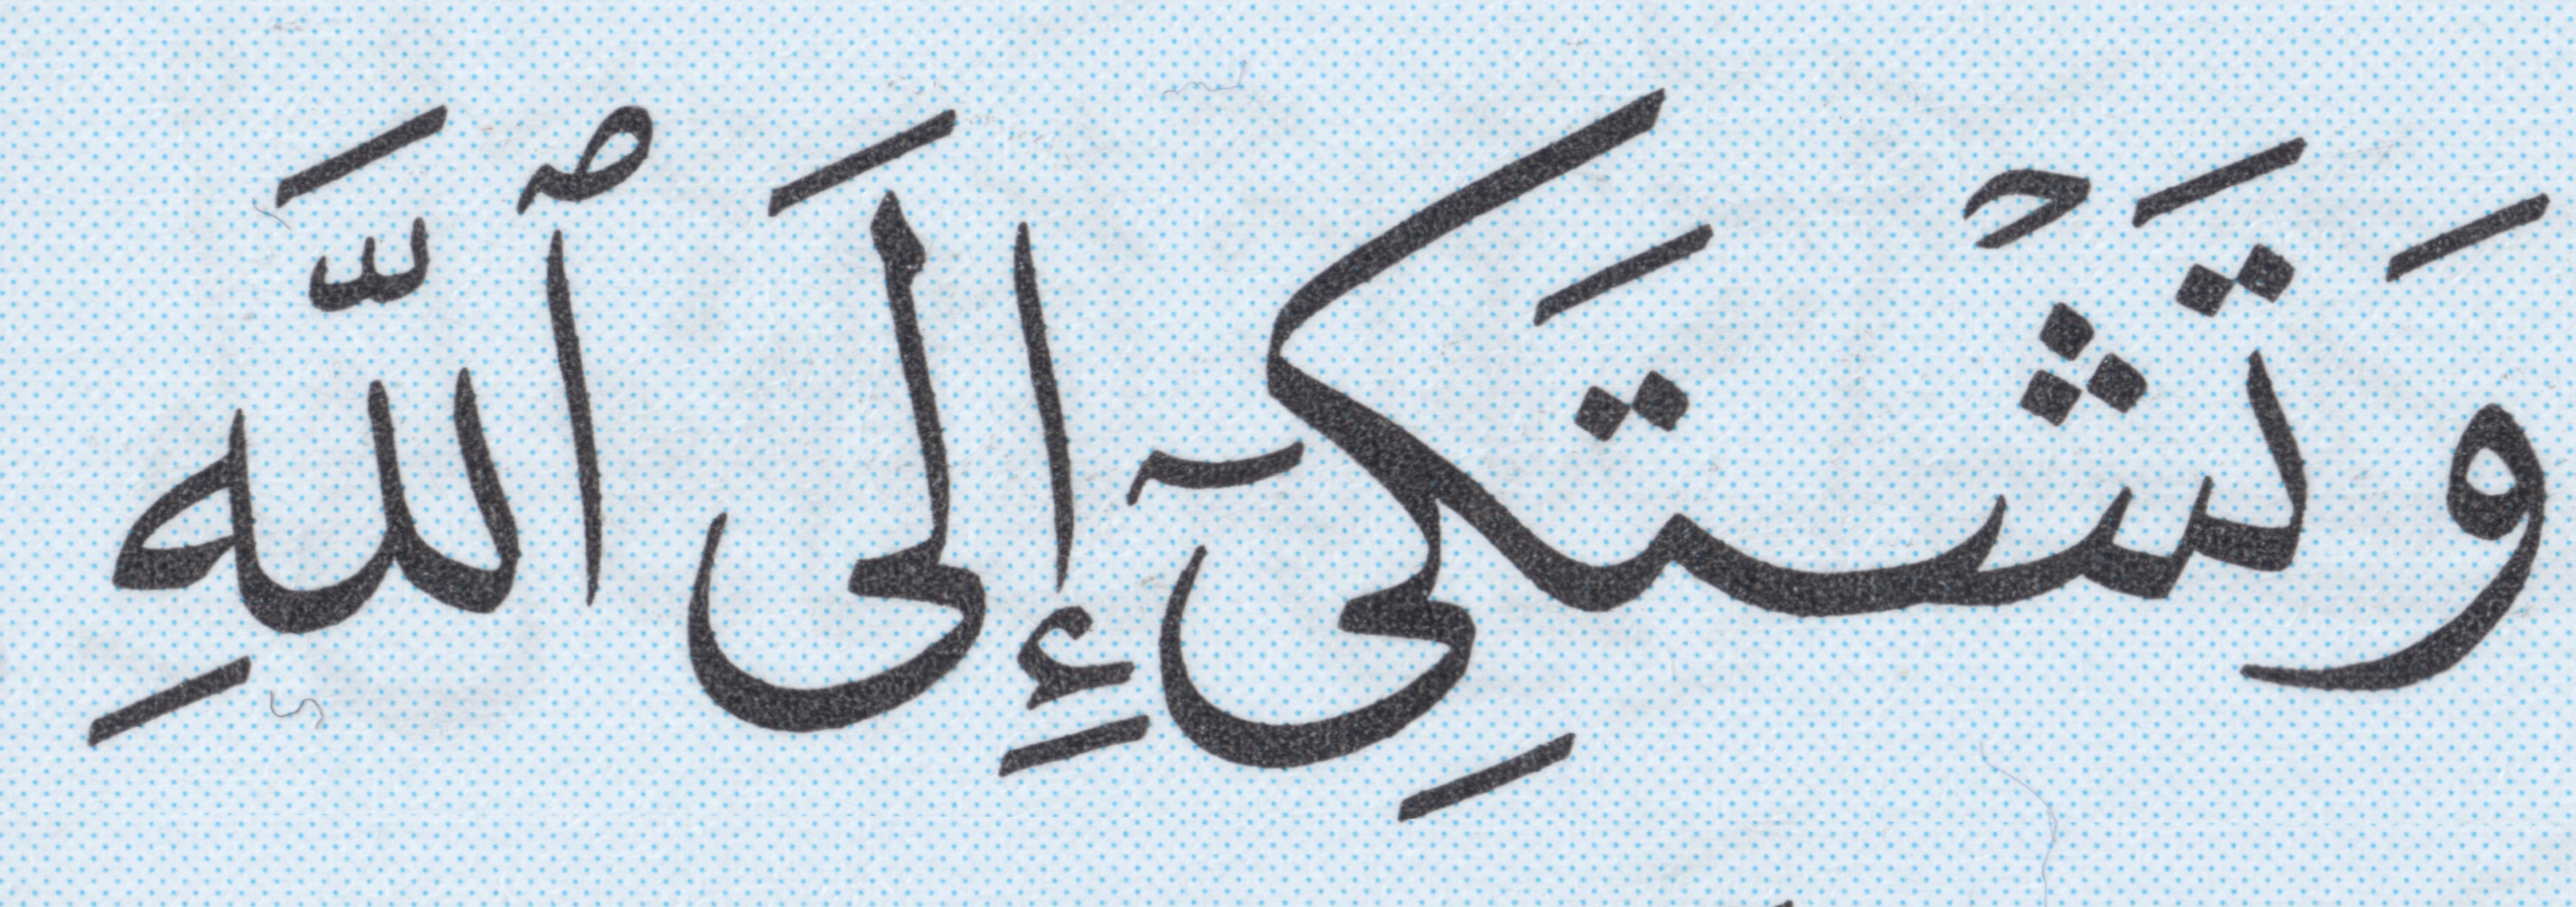 وَتَشْتَكِىٓ إِلَى ٱللَّهِ